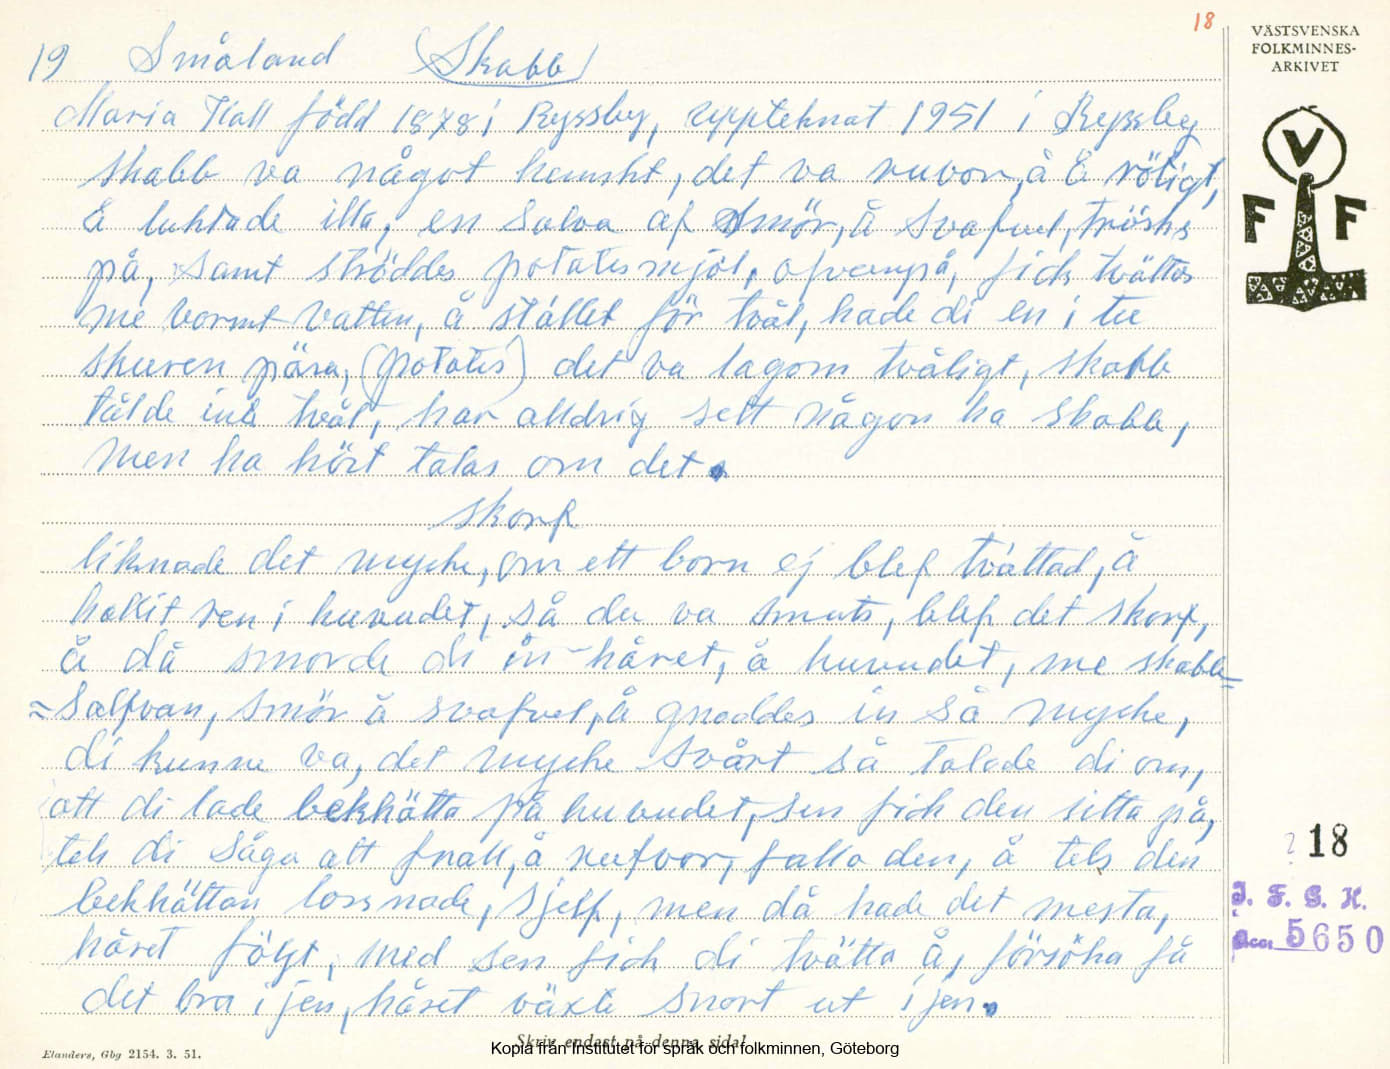 18
VÄSTSVENSKA
FOLKMINNES-
ARKIVET
V
F F
19 Småland (Skabb)
Maria Hall född 1878 i Ryssby, uppteknat 1951 i Ryssby
skabb va något hemskt, det va ruvor, å E rötigt,
E luktade illa, en Salva af Smör, å Svafvel, trösks
på, samt ströddes potatismjöl, ofvanpå, fick tvättas
me varmt vatten, å stället för tvål, hade di en i tu
skuren pära, (potatis) det va lagom tvåligt, skabb
tålde inte tvål, har alldrig sett någon ha skabb,
men ha hört talas om det.
skorf
liknade det myche, om ett barn ej blef tvättad, å
hållit ren i huvudet, så de va smuts, blef det skorf,
å då smorde di in håret, å huvudet, me skabb=
=Salfvan, smör å svafvel, å gnoddes in så myche,
di kunne va, det myche Svårt så talade di om,
att di lade bekhätta på huvudet, sen fick den sitta på,
tels di såga att fnall, å rufvor, falla den, å tels den
bekhättan lossnade, sjelf, men då hade det mesta,
håret följt, med sen fick di tvätta å, försöka få
det bra ijen, håret växte snort ut ijen.
18
J. F. G. H.
Acc. 5650
Elanders, Gbg 2154. 3. 51.
Skriv endast på denna sida!
Kopia från Institutet för språk och folkminnen, Göteborg